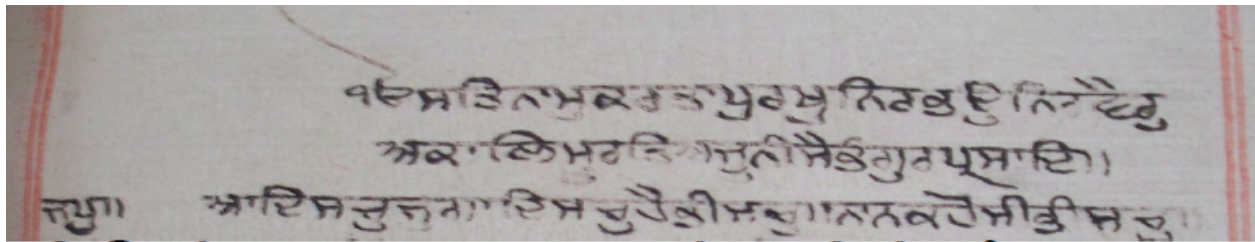 ੴਸਤਿਨਾਮੁਕਰਤਾਪੁਰਖੁਨਿਰਭਉਨਿਰਵੈਰੁ
ਅਕਾਲਮੂਰਤਿਅਜੂਨੀਸੈਭੰਗੁਰਪ੍ਰਸਾਦਿ॥
ਜਪੁ॥ ਆਦਿਸਚੁਜੁਗਾਦਿਸਚੁਹੈਭੀਸਚੁ॥ਨਾਨਕਹੋਸੀਭੀਸਚੁ॥